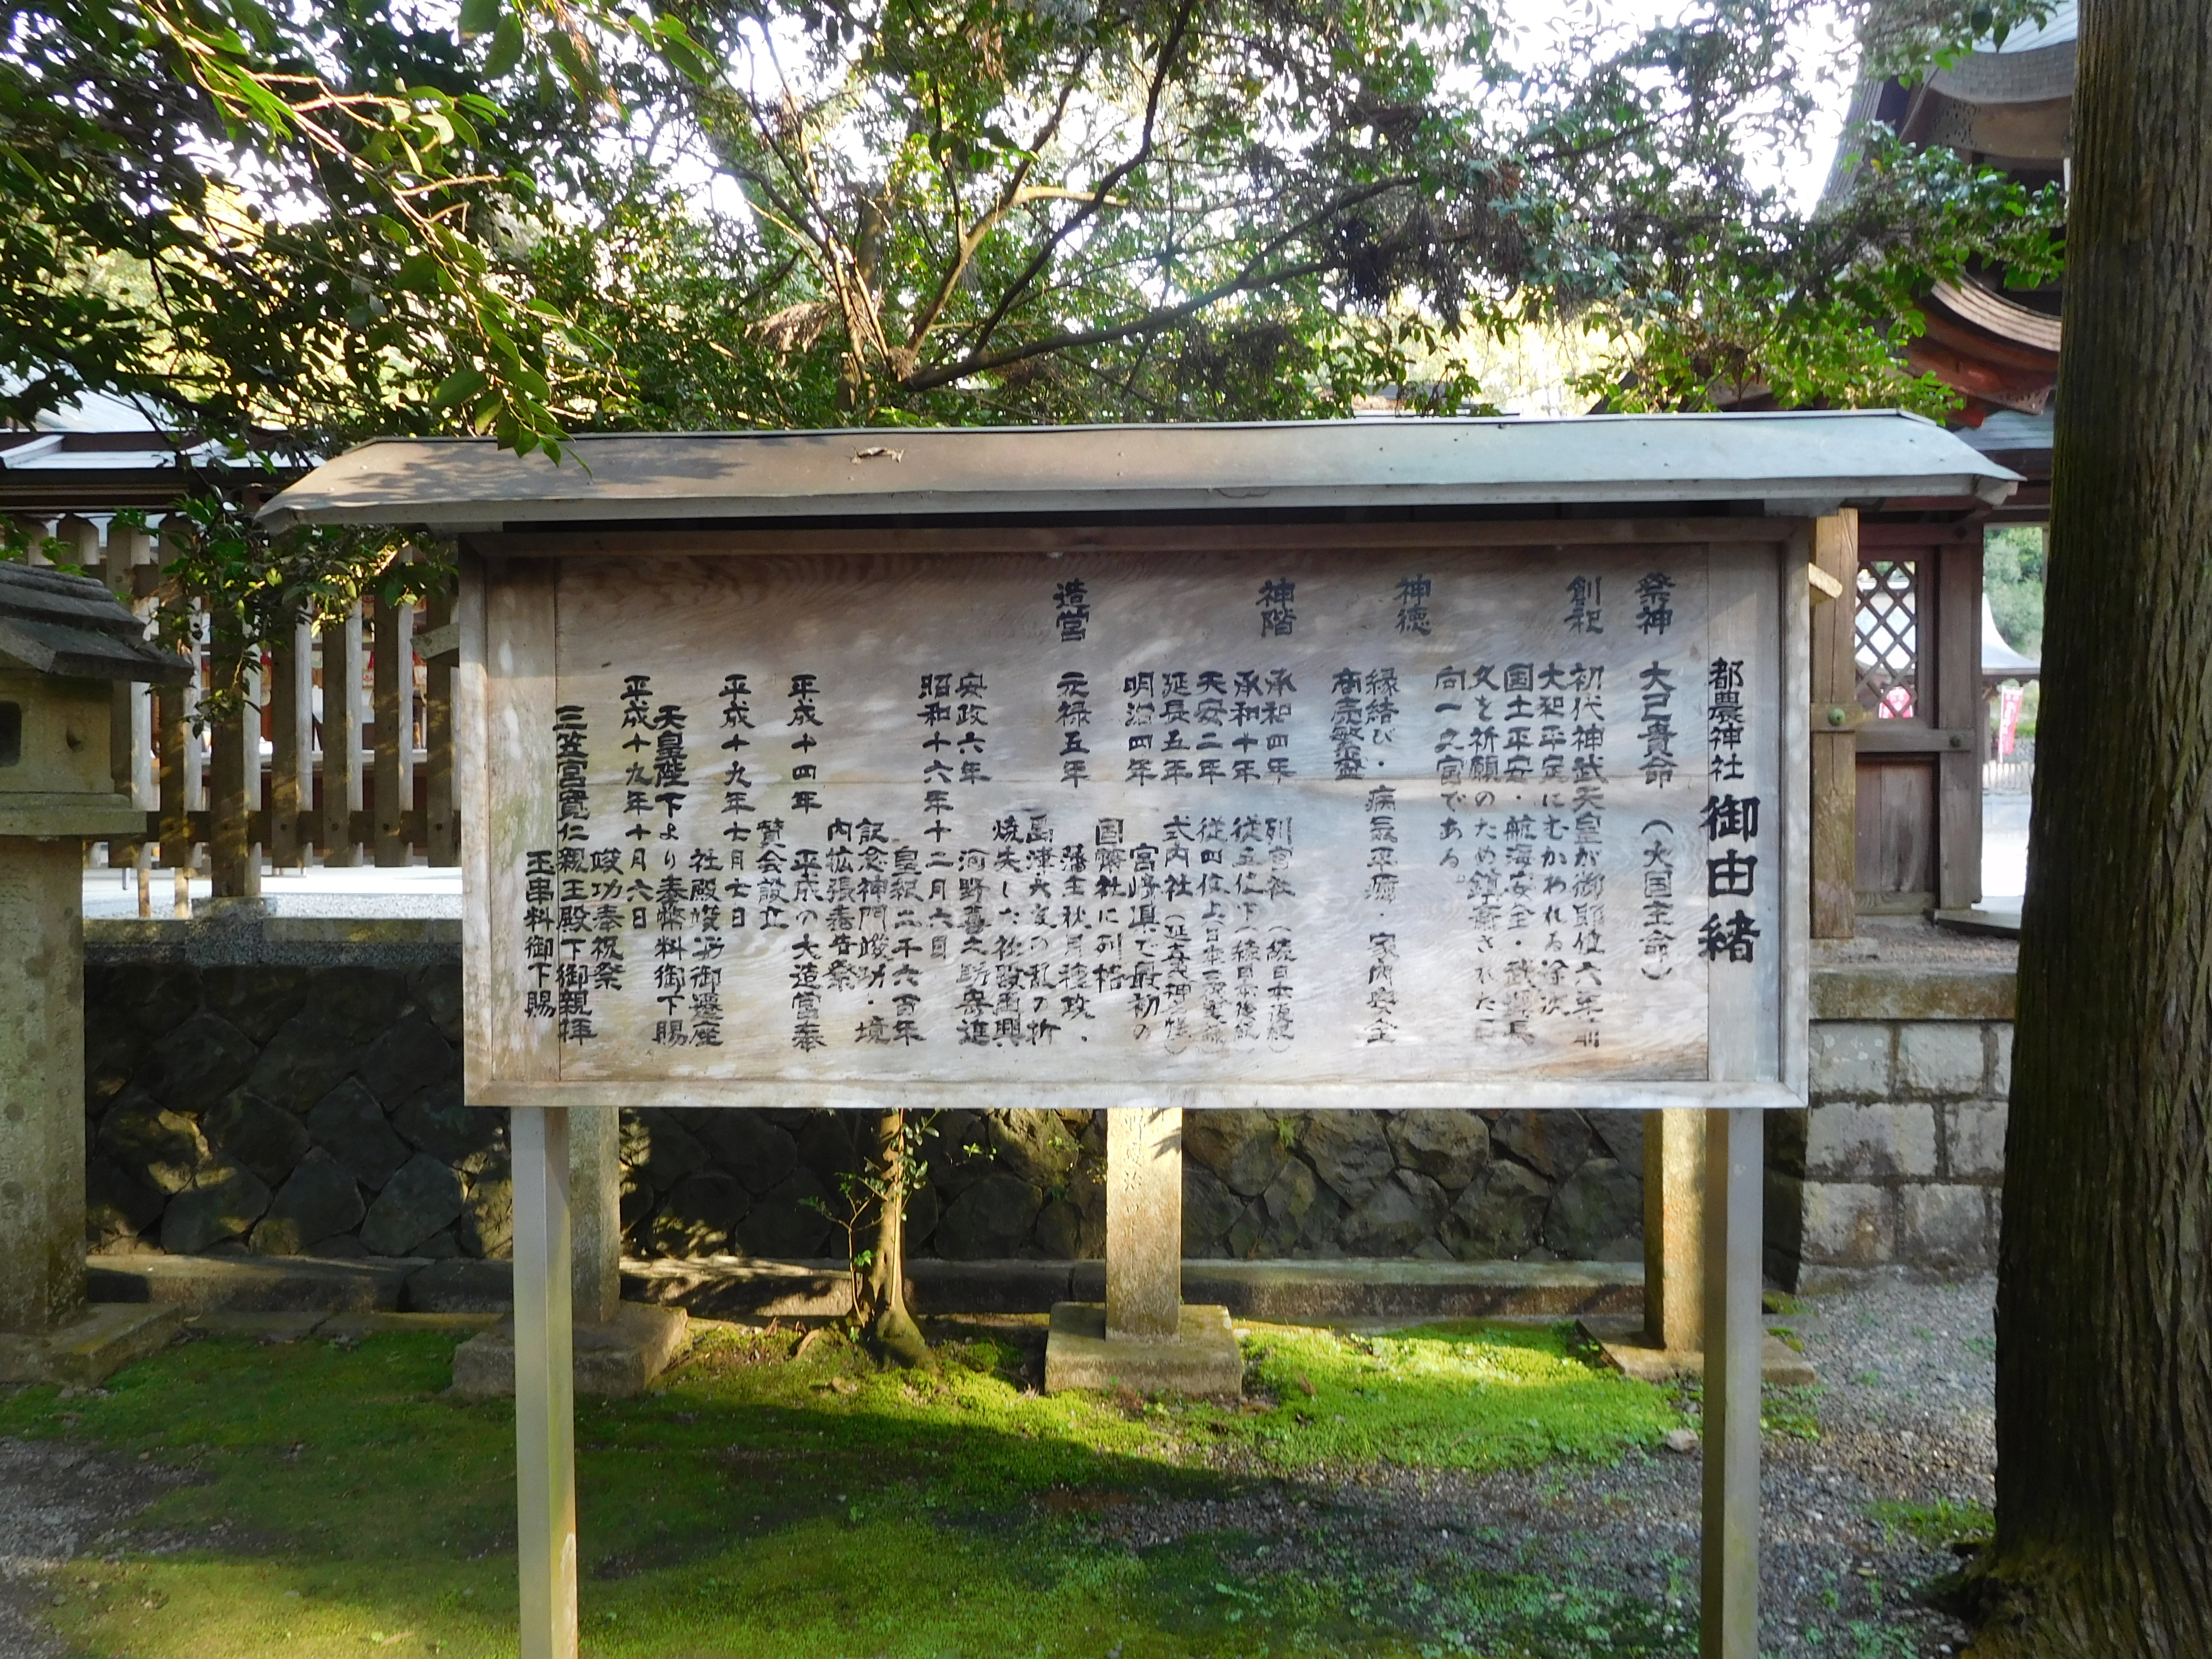 都農神社 御由緒
祭神 大己貴命 (大国主命)
創祀 初代神武天皇が御即位六年前
大和平定にむかわれる途次
国土平安・航海安全・武運長
久を祈願のため鎮斎された日
向一之宮である。
神徳 縁結び・病気平癒・家内安全
商売繁盛
神階 承和四年 列官社 (続日本後紀)
承和十年 従五位下 (続日本後紀)
天安二年 従四位上
延長五年 式内社 (延喜式神名帳)
明治四年 宮崎県で最初の
国幣社に列格
造営 元禄五年 藩主秋月種政、
島津・大友の乱の折
焼失した社殿再興
安政六年 河野喜之助寄進
昭和十六年十二月六日
皇紀二千六百年
記念神門竣功・境
内拡張奉告祭
平成十四年 平成の大造営奉
賛会設立
平成十九年七月七日
社殿竣功御遷座
天皇陛下より奉幣料御下賜
平成十九年十月六日
竣功奉祝祭
三笠宮寛仁親王殿下御親拝
玉串料御下賜